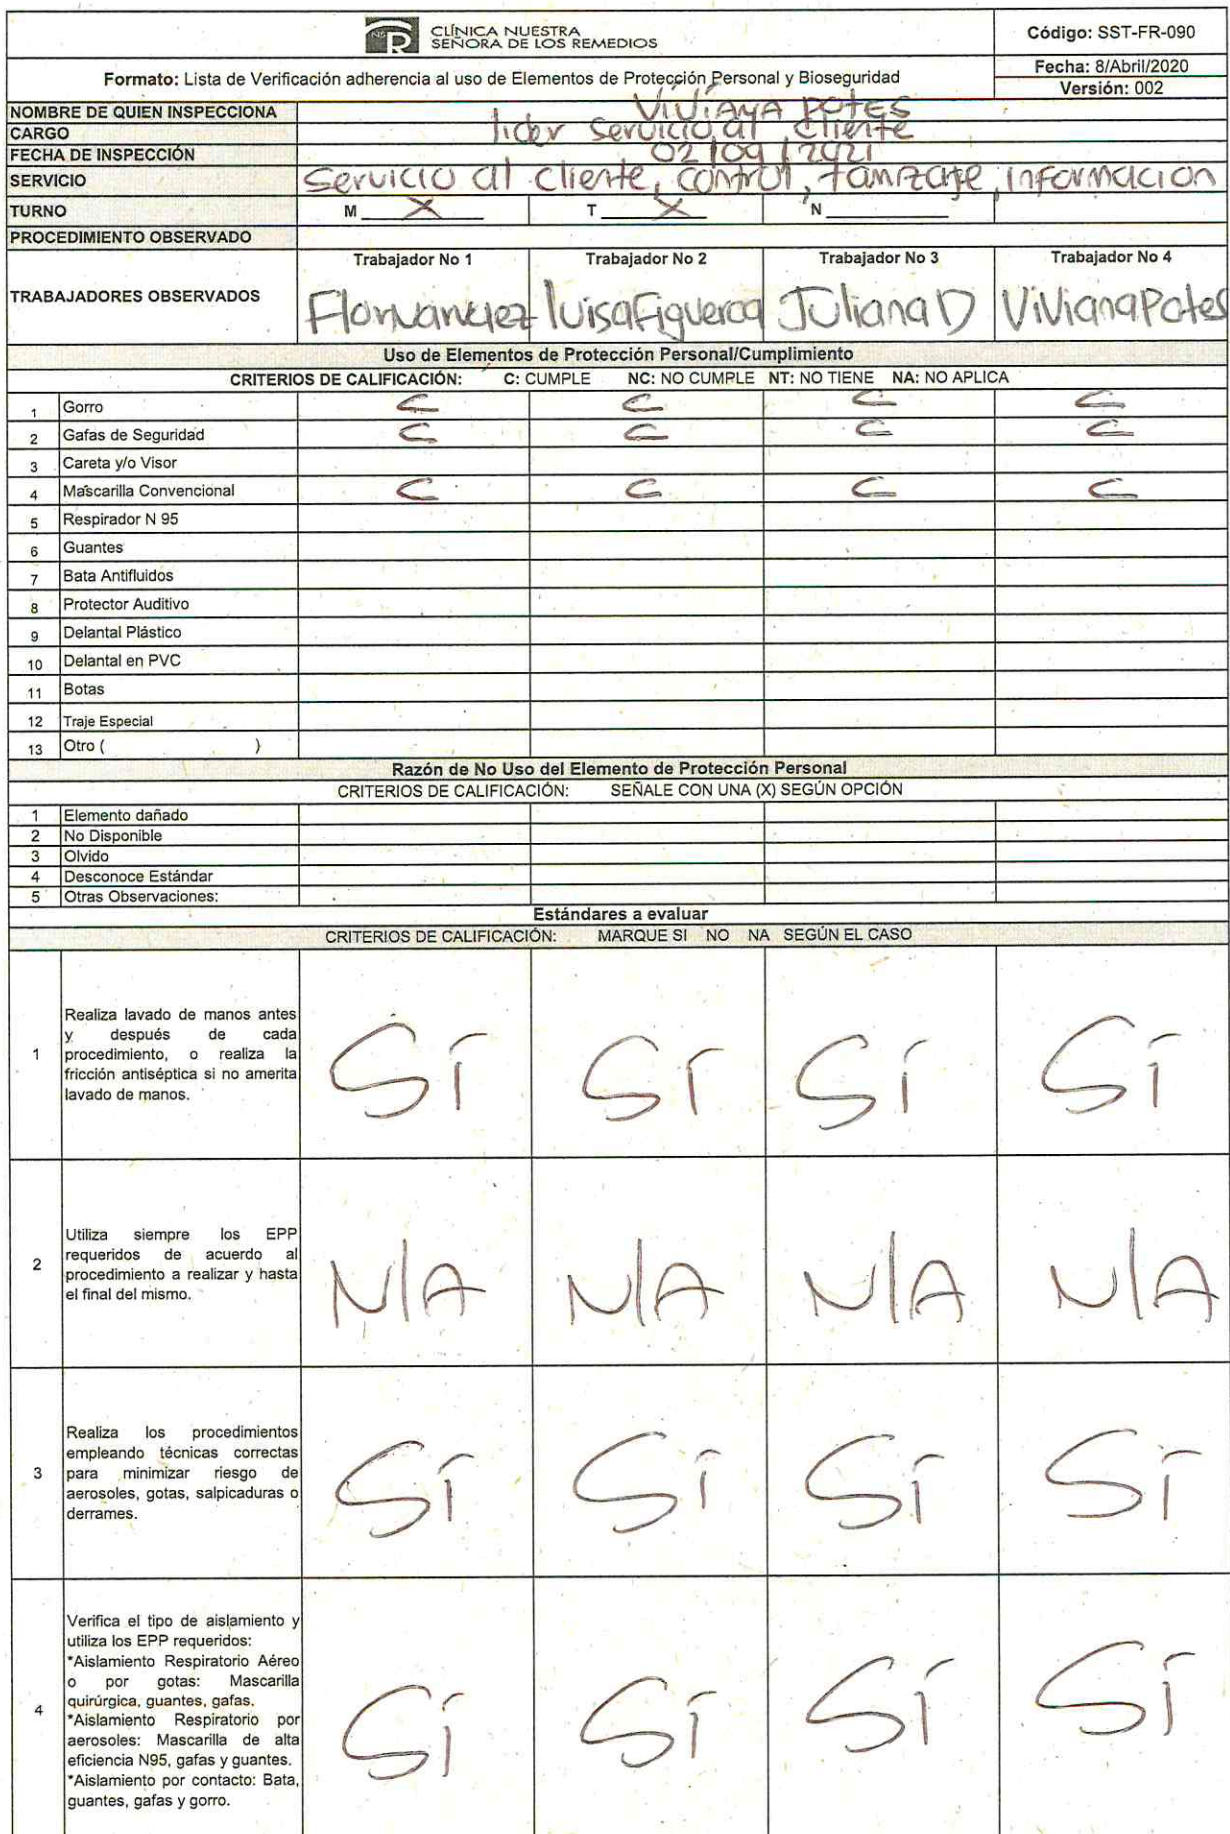 CLÍNICA NUESTRA
SEÑORA DE LOS REMEDIOS
Código: SST-FR-090
Formato: Lista de Verificación adherencia al uso de Elementos de Protección Personal y Bioseguridad
Fecha: 8/Abril/2020
Versión: 002
NOMBRE DE QUIEN INSPECCIONA Viviana Potes
CARGO lider servicio al cliente
FECHA DE INSPECCIÓN 02/09/2021
SERVICIO Servicio al cliente, control, tamizaje, informacion
TURNO M X T X N
PROCEDIMIENTO OBSERVADO
Trabajador No 1 Trabajador No 2 Trabajador No 3 Trabajador No 4
TRABAJADORES OBSERVADOS Luisa Figueroa Juliana D Viviana Potes
Uso de Elementos de Protección Personal/Cumplimiento
CRITERIOS DE CALIFICACIÓN: C: CUMPLE NC: NO CUMPLE NT: NO TIENE NA: NO APLICA
1 Gorro C C C C
2 Gafas de Seguridad C C C C
3 Careta y/o Visor
4 Mascarilla Convencional C C C C
5 Respirador N 95
6 Guantes
7 Bata Antifluidos
8 Protector Auditivo
9 Delantal Plástico
10 Delantal en PVC
11 Botas
12 Traje Especial
13 Otro ( )
Razón de No Uso del Elemento de Protección Personal
CRITERIOS DE CALIFICACIÓN: SEÑALE CON UNA (X) SEGÚN OPCIÓN
1 Elemento dañado
2 No Disponible
3 Olvido
4 Desconoce Estándar
5 Otras Observaciones:
Estándares a evaluar
CRITERIOS DE CALIFICACIÓN: MARQUE SI NO NA SEGÚN EL CASO
1
Realiza lavado de manos antes
y después de cada
procedimiento, o realiza la
fricción antiséptica si no amerita
lavado de manos.
Sí Sí Sí Sí
2
Utiliza siempre los EPP
requeridos de acuerdo al
procedimiento a realizar y hasta
el final del mismo.
N/A N/A N/A N/A
3
Realiza los procedimientos
empleando técnicas correctas
para minimizar riesgo de
aerosoles, gotas, salpicaduras o
derrames.
Sí Sí Sí Sí
4
Verifica el tipo de aislamiento y
utiliza los EPP requeridos:
*Aislamiento Respiratorio Aéreo
o por gotas: Mascarilla
quirúrgica, guantes, gafas.
*Aislamiento Respiratorio por
aerosoles: Mascarilla de alta
eficiencia N95, gafas y guantes.
*Aislamiento por contacto: Bata,
guantes, gafas y gorro.
Sí Sí Sí Sí